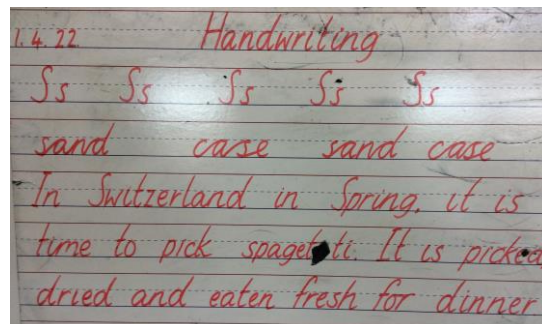 1.4.22. Handwriting
Ss Ss Ss Ss Ss
sand case sand case
In Switzerland in Spring, it is
time to pick It is picked
dried and eaten fresh for dinner